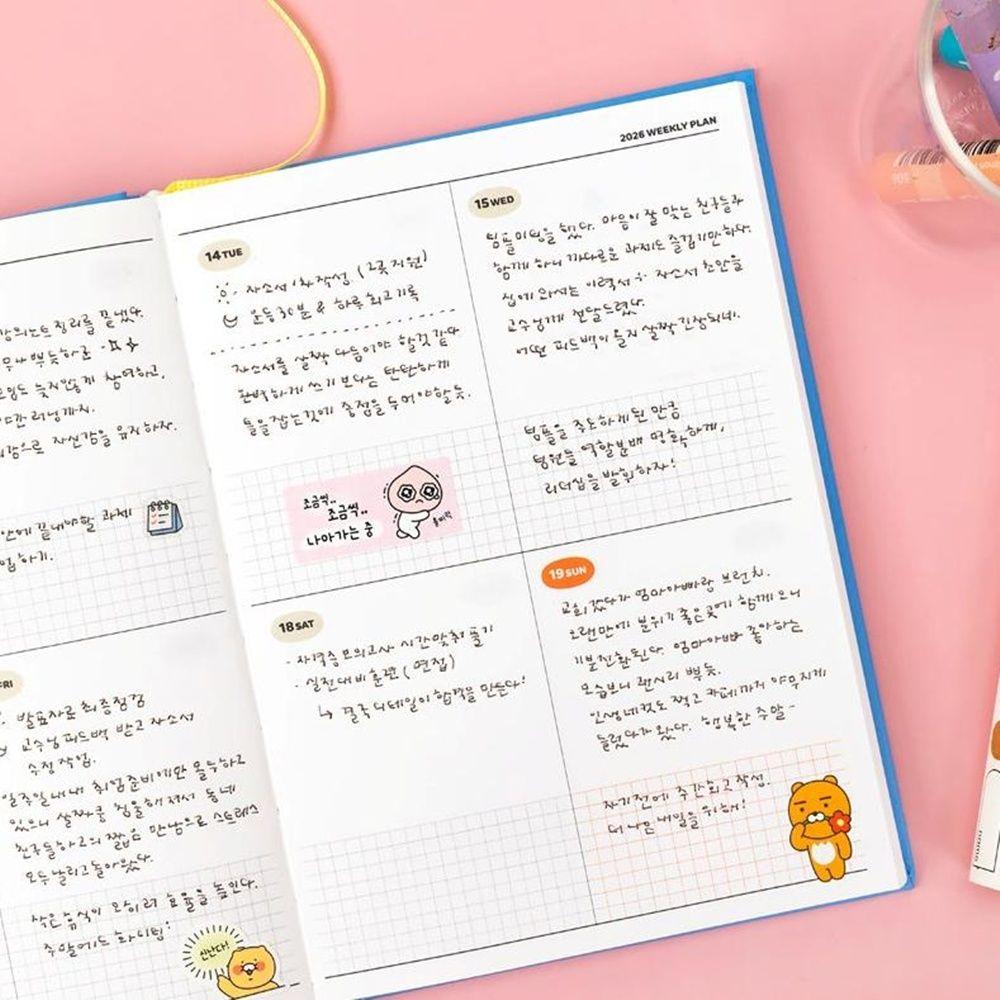 강의노트 정리를 끝냈다.
뿌듯하군
늦지않게 참여하고,
러닝까지.
으로 자신감을 유지하자.
안에 끝내야할 과제
하기.
FRI
발표자료 최종점검
교수님 피드백 받고 자소서
수정작업.
일주일내내 취업준비에만 몰두하고
있으니 살짝쿵 침울해져서 동네
친구들하고의 짧은 만남으로 스트레스
모두 날리고 돌아왔다.
작은 휴식이 오히려 효율을 높인다.
주말에도 화이팅!
신난다!
2026 WEEKLY PLAN
14 TUE
자소서 1차작성 (2곳지원)
운동30분 & 하루회고기록
자소서를 살짝 다듬어야 할것 같다
완벽하게 쓰기 보다는 탄탄하게
틀을잡는것에 중점을 두어야할듯.
조금씩..
조금씩..
나아가는 중
15 WED
팀플미팅을 했다. 마음이 잘 맞는 친구들과
함께 하니 까다로운 과제도 즐겁기만하다.
집에 와서는 이력서 자소서 초안을
교수님께 전달드렸다.
어떤 피드백이 올지 살짝 긴장되네.
팀플을 주도하게된 만큼
팀원들 역할분배 명확하게,
리더십을 발휘하자!
18 SAT
· 자격증모의고사 시간맞춰 풀기
· 실전대비훈련 (면접)
↳ 결국 디테일이 합격을 만든다!
19 SUN
교회갔다가 엄마아빠랑 브런치.
오랜만에 분위기 좋은곳에 함께 오니
기분전환된다. 엄마아빠 좋아하는
모습보니 괜시리 뿌듯.
인생네컷도 찍고 카페까지 야무지게
들렀다가 왔다. 행복한 주말~
자기전에 주간회고작성.
더 나은 내일을 위해!